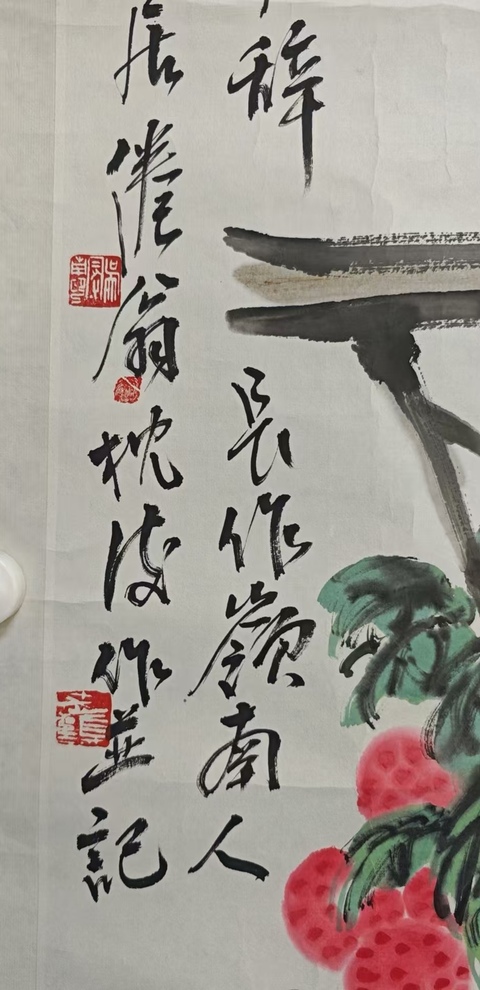 辞長作嶺南人
居僊翁枕流作並記